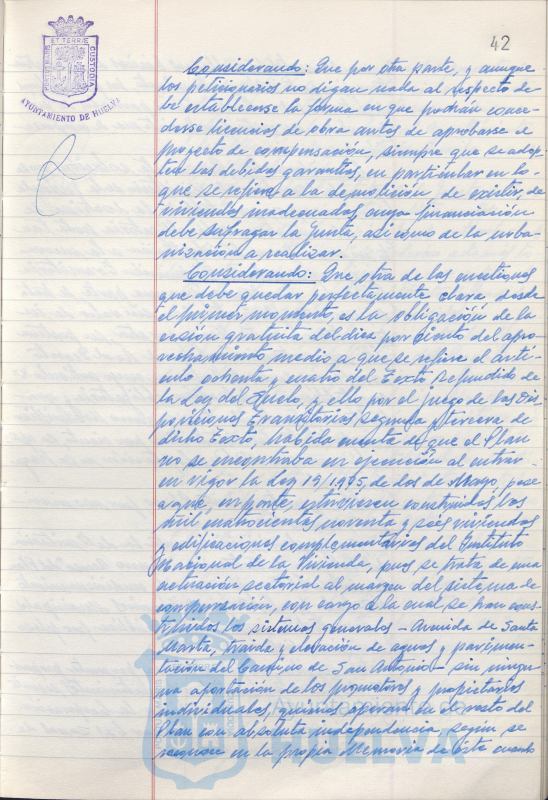 42
PORTUS MARIS
ET TERRÆ
CUSTODIA
AYUNTAMIENTO DE HUELVA
Considerando: Que por otra parte, y aunque
los peticionarios no digan nada al respecto de-
be establecerse la forma en que podrán conce-
derse licencias de obra antes de aprobarse el
proyecto de compensación, siempre que se adop-
ten las debidas garantías, en particular en lo
que se refiere a la demolición, de existir, de
viviendas inadecuadas, cuya financiación
debe sufragar la Junta, así como de la urba-
nización a realizar.
Considerando: Que otra de las cuestiones
que debe quedar perfectamente clara desde
el primer momento, es la obligación de la
cesión gratuita del diez por ciento del apro-
vechamiento medio a que se refiere el artí-
culo ochenta y cuatro del Texto refundido de
la Ley del Suelo, y ello por el juego de las Dis-
posiciones Transitorias segunda y tercera de
dicho Texto, habida cuenta de que el Plan
no se encontraba en ejecución al entrar
en vigor la Ley 19/1975, de dos de Mayo, pese
a que, en parte, estuviesen construidas las
mil cuatrocientas noventa y seis viviendas
y edificaciones complementarias del Instituto
Nacional de la Vivienda, pues se trata de una
actuación sectorial al margen del sistema de
compensación, con cargo a la cual se han cons-
truidos los sistemas generales - Avenida de Santa
Marta, traída y elevación de aguas y pavimen-
tación del Camino de San Antonio - sin ningu-
na aportación de los promotores y propietarios
individuales, quienes operan en el resto del
Plan con absoluta independencia según se
reconoce en la propia Memoria de éste cuando
Ayuntamiento de
HUELVA